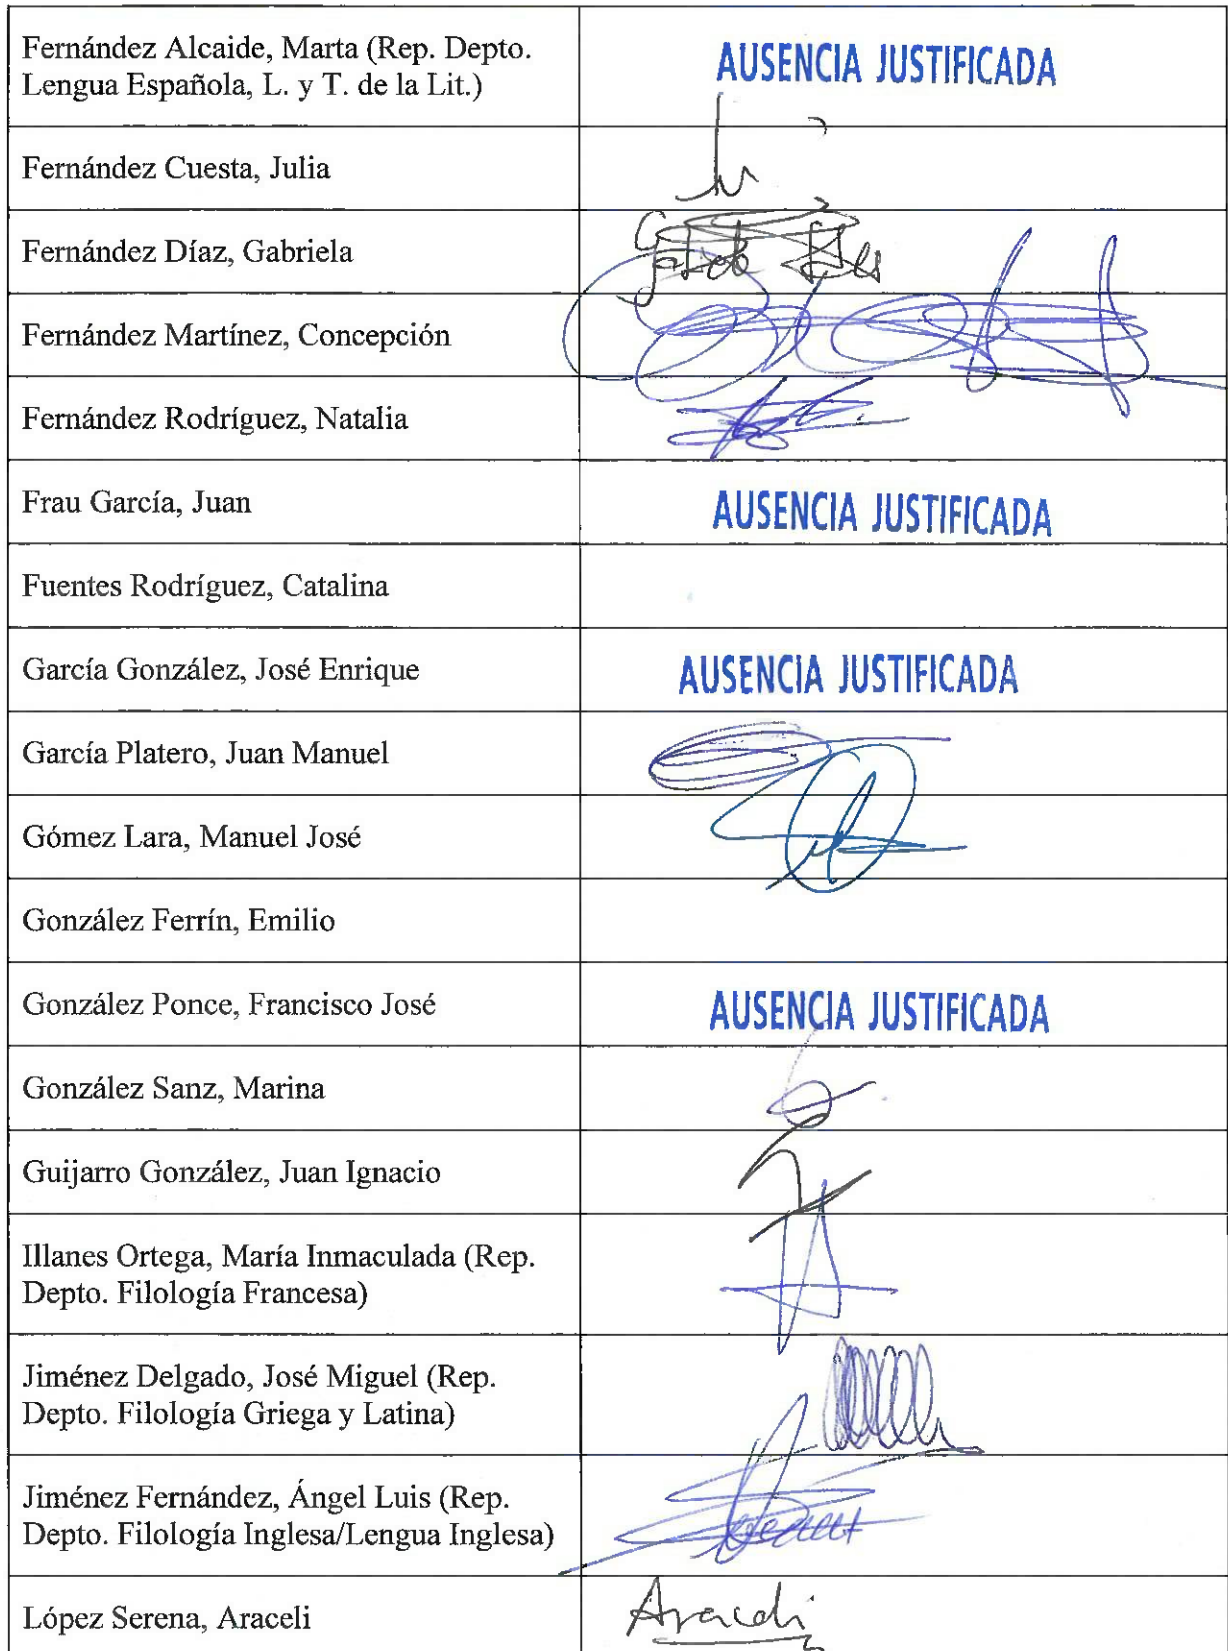 Fernández Alcaide, Marta (Rep. Depto.
Lengua Española, L. y T. de la Lit.)
AUSENCIA JUSTIFICADA
Fernández Cuesta, Julia
Fernández Díaz, Gabriela
Fernández Martínez, Concepción
Fernández Rodríguez, Natalia
Frau García, Juan
AUSENCIA JUSTIFICADA
Fuentes Rodríguez, Catalina
García González, José Enrique
AUSENCIA JUSTIFICADA
García Platero, Juan Manuel
Gómez Lara, Manuel José
González Ferrín, Emilio
González Ponce, Francisco José
AUSENCIA JUSTIFICADA
González Sanz, Marina
Guijarro González, Juan Ignacio
Illanes Ortega, María Inmaculada (Rep.
Depto. Filología Francesa)
Jiménez Delgado, José Miguel (Rep.
Depto. Filología Griega y Latina)
Jiménez Fernández, Ángel Luis (Rep.
Depto. Filología Inglesa/Lengua Inglesa)
López Serena, Araceli
Araceli